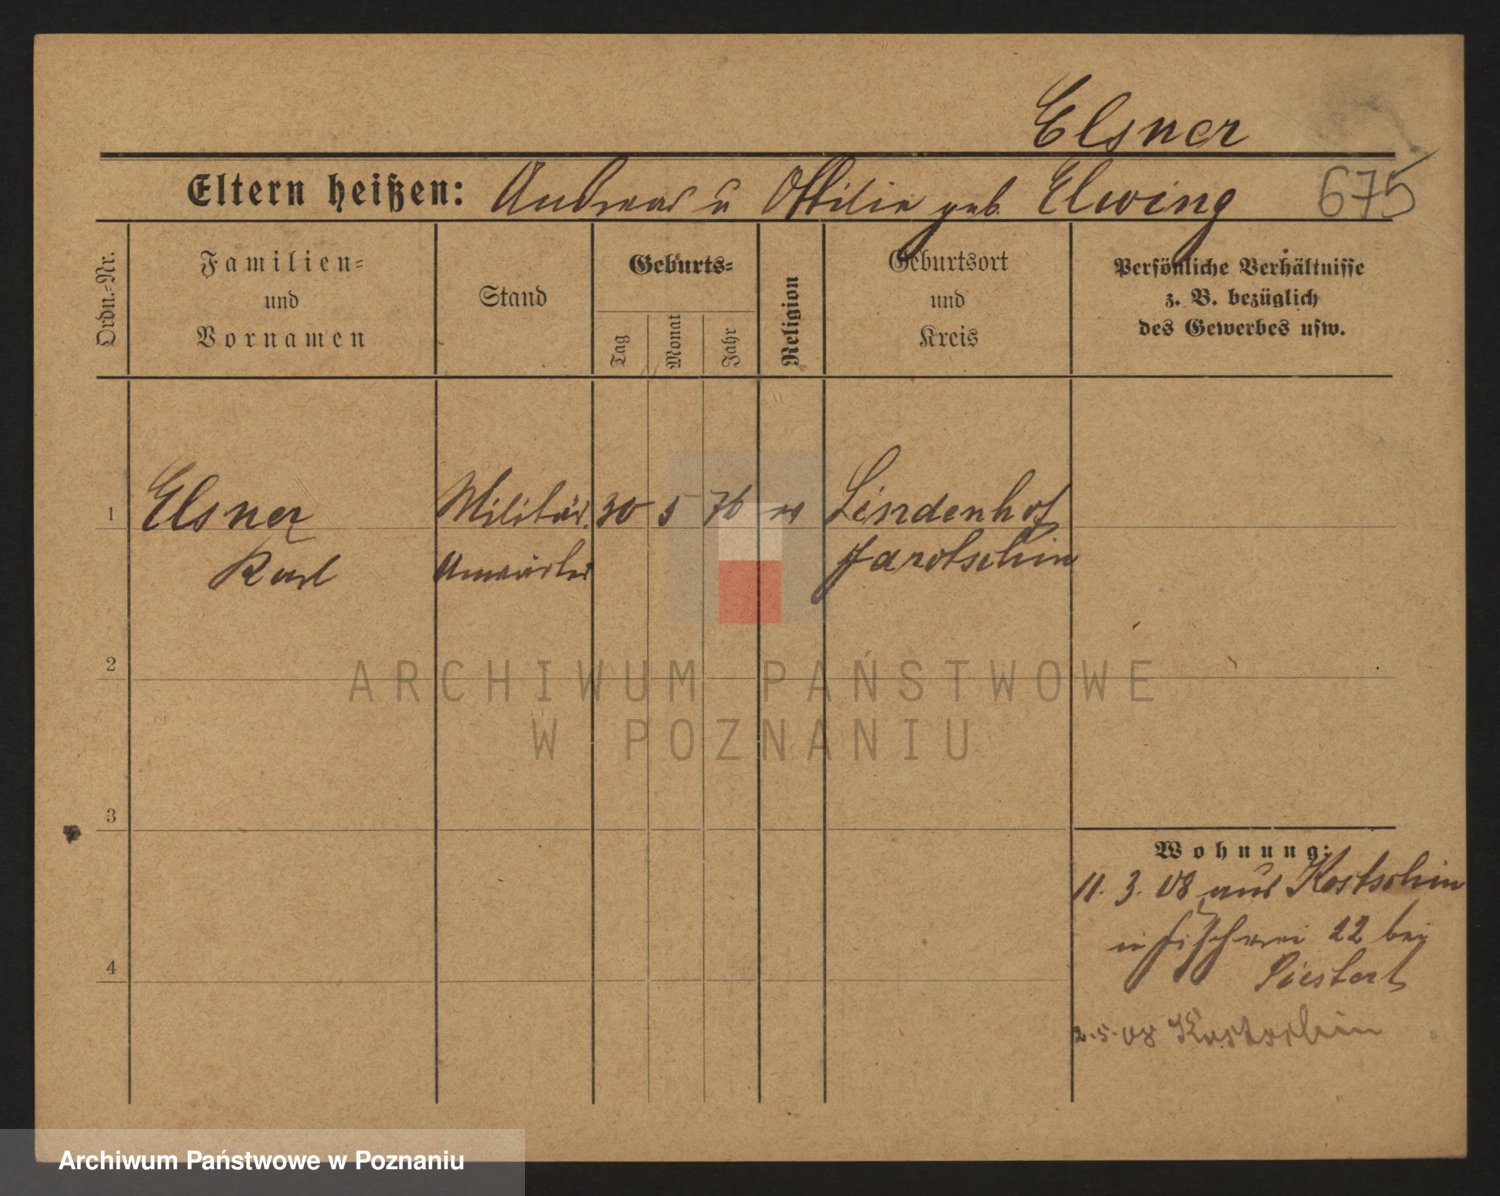 Elsner
Eltern heißen: Andreas u Ottilie geb. Elwing 675
Ordn.-Nr.
Familien-
und
Vornamen
Stand
Geburts-
Tag
Monat
Jahr
Religion
Geburtsort
und
Kreis
Persönliche Verhältnisse
z. B. bezüglich
des Gewerbes usw.
1 Elsner Militär 30 5 76 Lindenhof
Karl Anwärter Jarotschin
2
ARCHIWUM PAŃSTWOWE
W POZNANIU
3
Wohnung:
11. 3. 08 aus Kostschin
Fischerei 22 bei
4
2.5.08 Kostschin
Archiwum Państwowe w Poznaniu